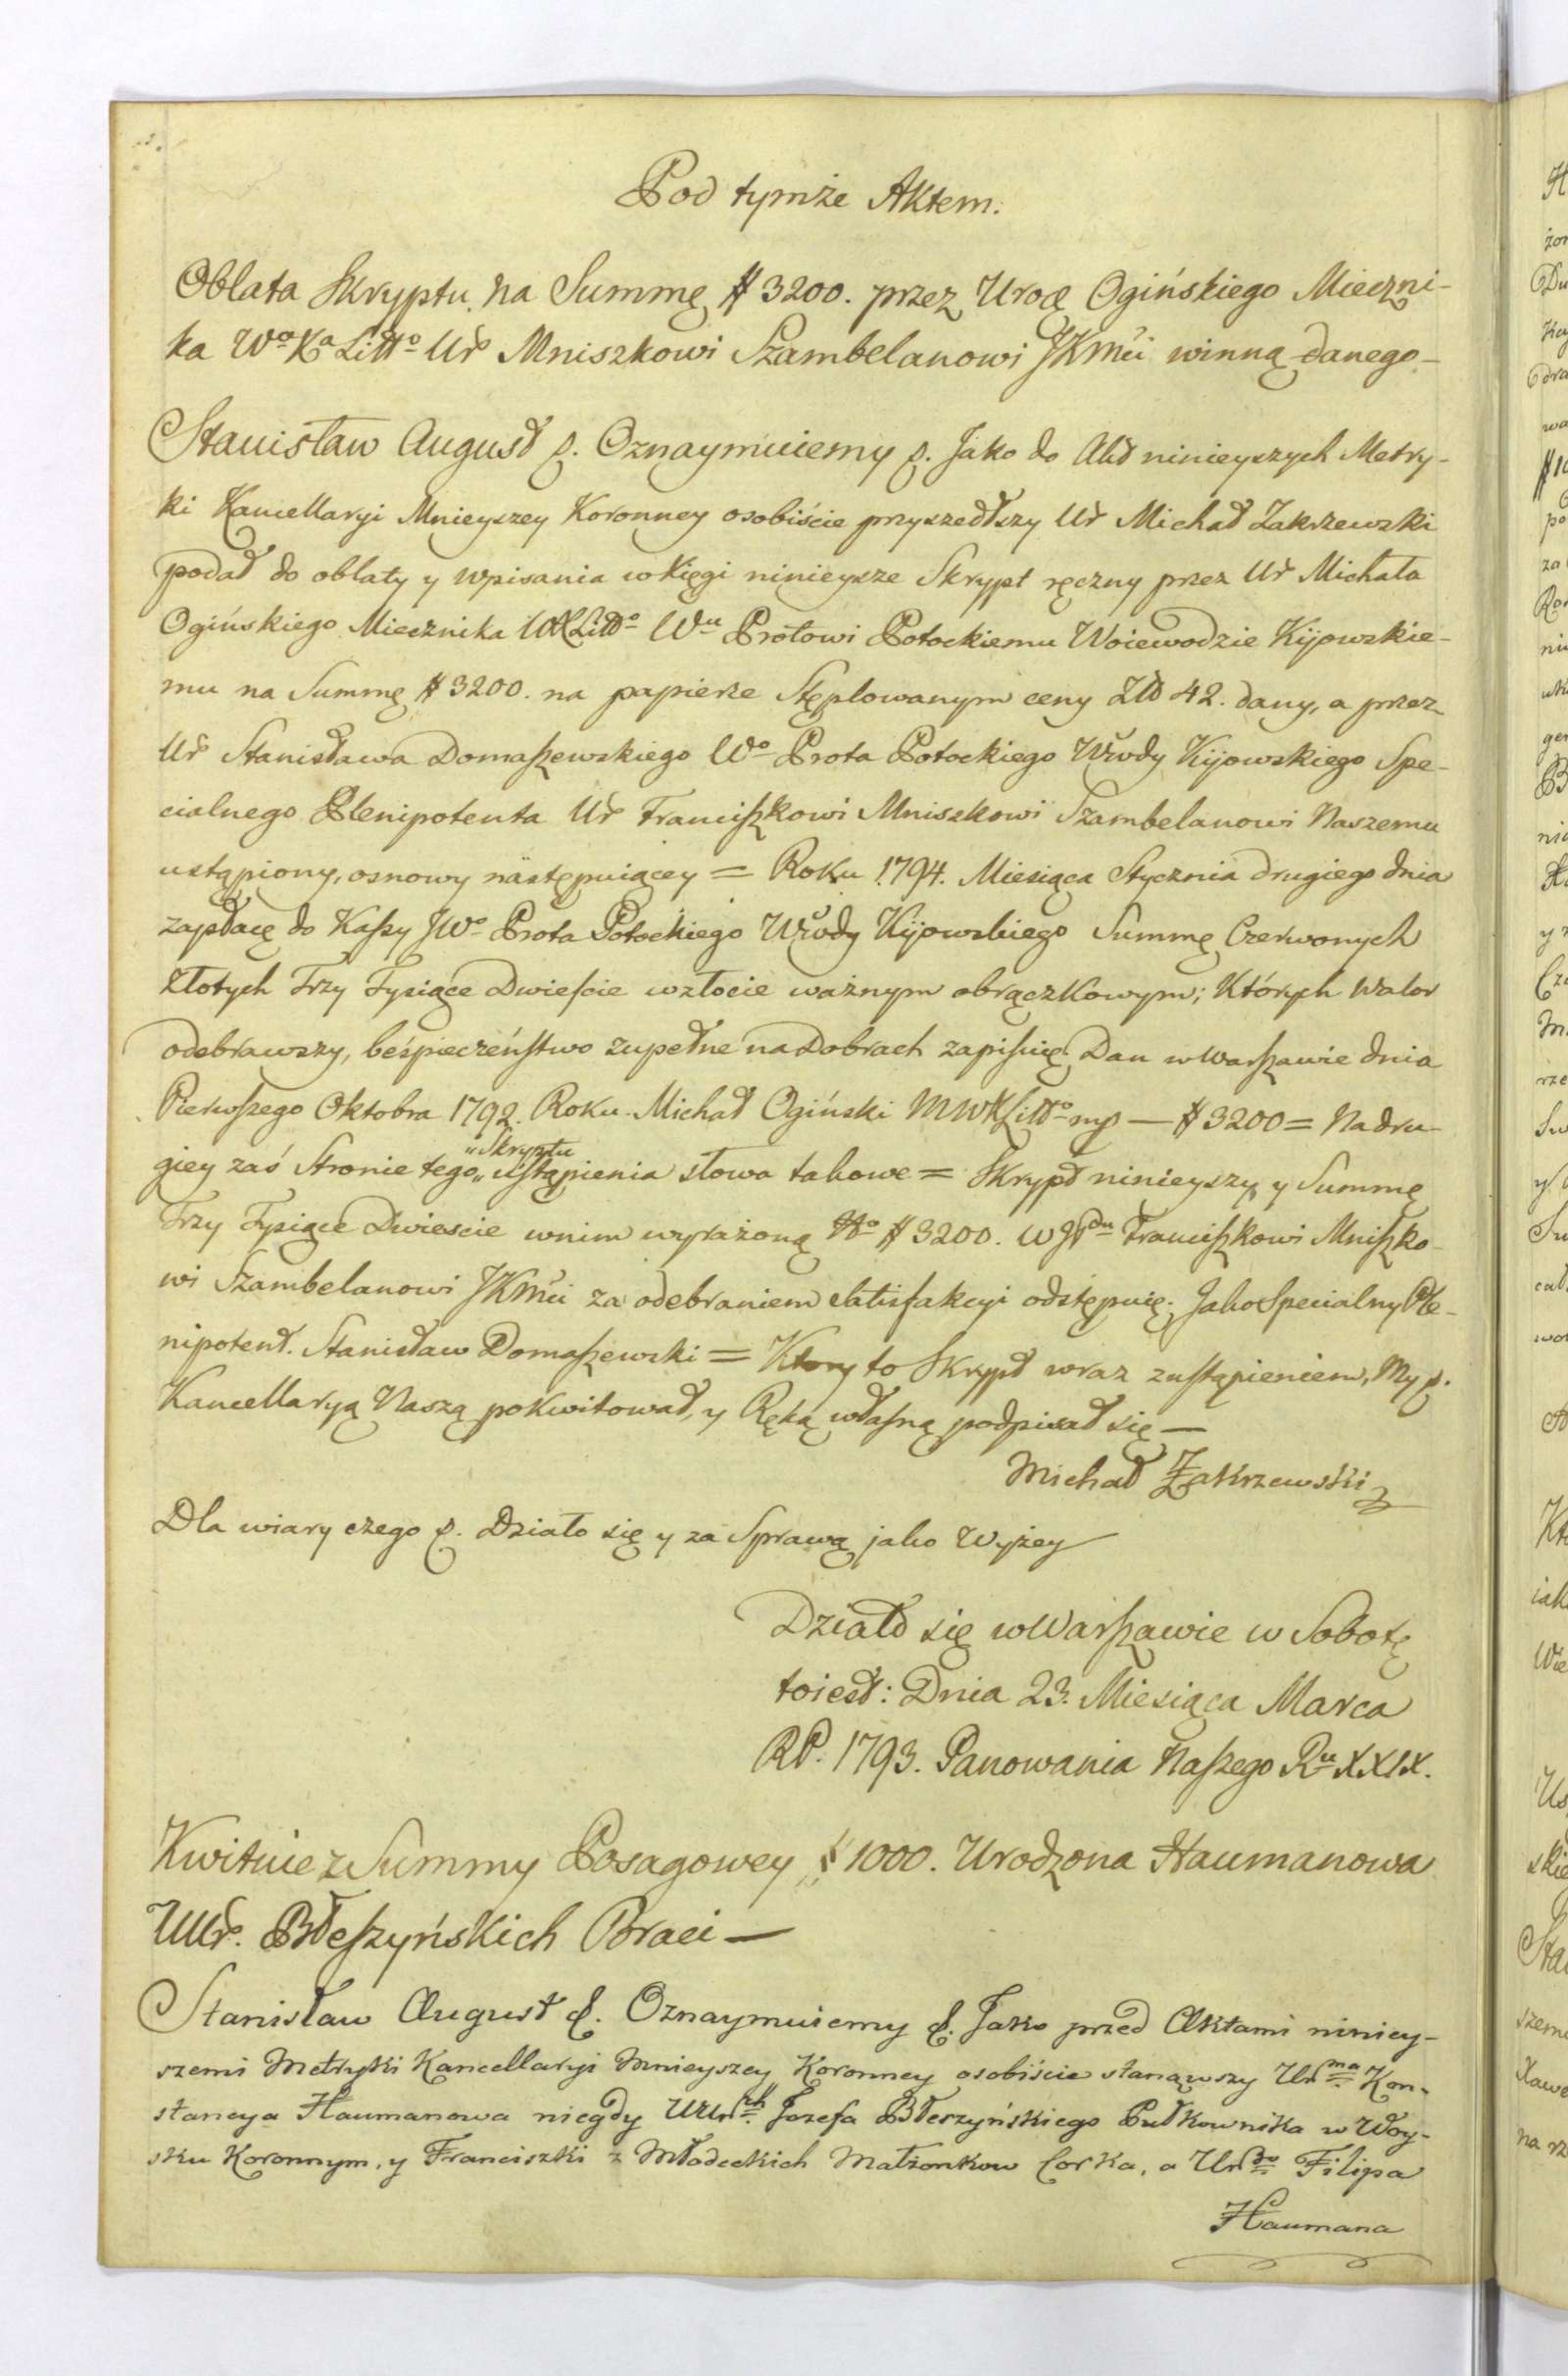 Pod tymże Aktem.
Oblata Skryptu na Summę # 3200. przez Urog Ogińskiego Mieczni-
ka Wo Ka Litto Ur Mniszkowi Szambelanowi JKMci winną danego
Stanisław August p. Oznaymuiemy p. Jako do Akt ninieyszych Metry-
ki Kancellaryi Mnieyszey Koronney osobiście przyszedłszy Ur Michał Zakrzewski
podał do oblaty y wpisania w Kięgi ninieysze Skrypt ręczny przez Ur Michała
Ogińskiego Miecznika WXLitto Wu Protowi Potockiemu Woiewodzie Kijowskie-
mu na Summę # 3200. na papierze Stęplowanym ceny Złd 42. dany, a przez
Ur Stanisława Domaszewskiego Wo Prota Potockiego Wwdy Kijowskiego Spe-
cialnego Plenipotenta Ur Franciszkowi Mniszkowi Szambelanowi Naszemu
ustąpiony, osnowy następuiącey = Roku 1794. Miesiąca Stycznia drugiego dnia
zapłacę do Kassy JWo Prota Potockiego Wwdy Kijowskiego Summę Czerwonych
Złotych Trzy Tysiące Dwieście w złocie ważnym obrączkowym; Których Walor
odebrawszy, beśpieczeństwo zupełne na Dobrach zapisuię Dan w Warszawie dnia
Pierwszego Oktobra 1792. Roku Michał Ogiński MWXLitto mp — # 3200 = Na dru-
giey zaś Stronie tego „Skryptu„ ustąpienia słowa takowe = Skrypt ninieyszy y Summę
Trzy Tysiące Dwieście w nim wyrażoną No # 3200. WJPdu Franciszkowi Mniszko-
wi Szambelanowi JKMci za odebraniem satisfakcyi odstępuię. Jako Specialny Ple-
nipotent. Stanisław Domaszewski = Ktory to Skrypt wraz z ustąpieniem, My p.
Kancellaryą Naszą pokwitował, y Ręką własną podpisał się —
Michał Zakrzewski
Dla wiary czego p. Działo się y za Sprawą jako Wyżey
Działo się w Warszawie w Sobotę
toiest: Dnia 23. Miesiąca Marca
RP. 1793. Panowania Naszego Ru XXIX.
Kwituie z Summy Posagowey # 1000. Urodzona Haumanowa
UUr. Błeszyńskich Braci —
Stanisław August p. Oznaymuiemy p. Jako przed Aktami niniey-
szemi Metryki Kancellaryi Mnieyszey Koronney osobiście stanąwszy Urma Kon-
stancya Haumanowa niegdy UUrch Jozefa Błeszyńskiego Pułkownika w Woy-
sku Koronnym, y Franciszki z Młodeckich Małżonkow Corka, a Urgo Filipa
Haumana